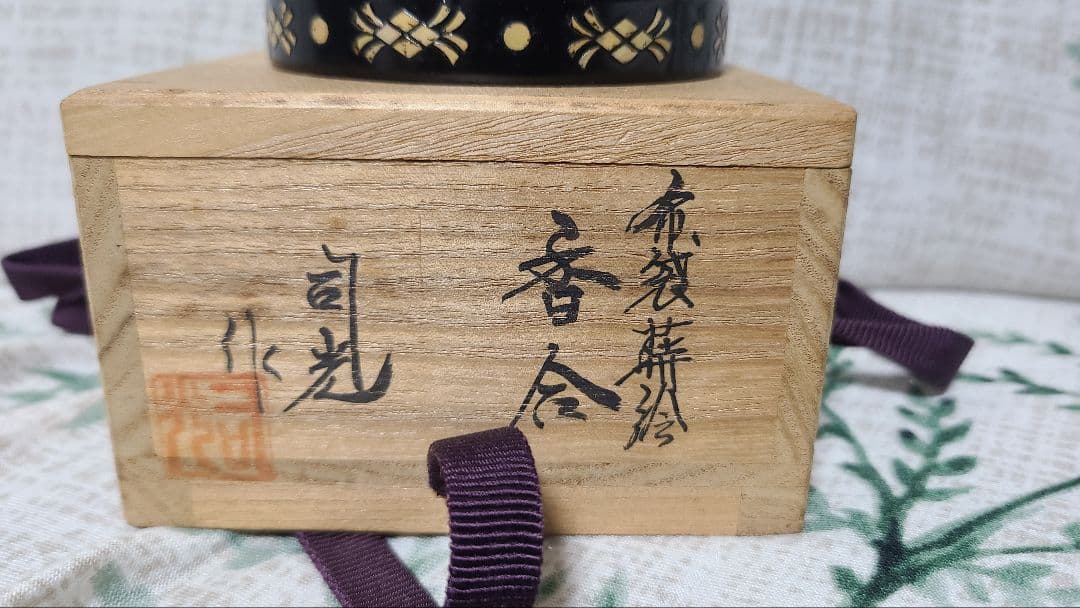 布袋蒔絵
香合
司光
作